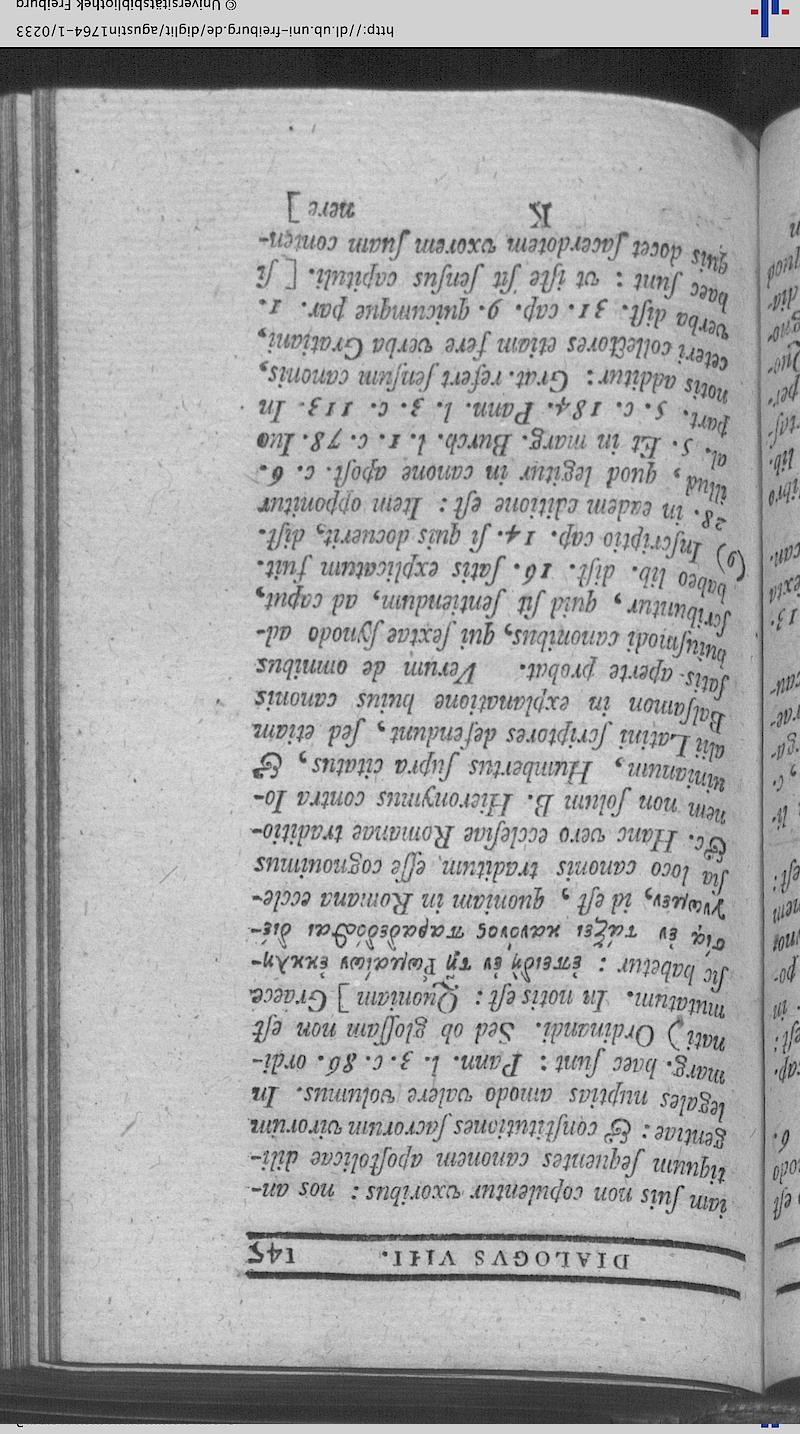 DIALOGVS VIII. 145
iam suis non copulentur vxoribus: nos an-
tiquum sequentes canonem apostolicae dili-
gentiae: & constitutiones sacrorum virorum
legales nuptias amodo valere volumus. In
marg. haec sunt: Pann. l. 3. c. 86. ordi-
nati) Ordinandi. Sed ob glossam non est
mutatum. In notis est: Quoniam] Graece
sic habetur: ἐπειδὴ ἐν τῇ Ῥωμαίων ἐκκλη-
σίᾳ ἐν τάξει κανόνος παραδεδόσθαι διέ-
γνωμεν, id est, quoniam in Romana eccle-
sia loco canonis traditum esse cognouimus
&c. Hanc vero ecclesiae Romanae traditio-
nem non solum B. Hieronymus contra Io-
uinianum, Humbertus supra citatus, &
alii Latini scriptores defendunt, sed etiam
Balsamon in explanatione huius canonis
satis aperte probat. Verum de omnibus
huiusmodi canonibus, qui sextae synodo ad-
scribuntur, quid sit sentiendum, ad caput,
habeo lib. dist. 16. satis explicatum fuit.
(9) Inscriptio cap. 14. si quis docuerit, dist.
28. in eadem editione est: Item opponitur
illud, quod legitur in canone apost. c. 6.
al. 5. Et in marg. Burch. l. 1. c. 78. Iuo
part. 5. c. 184. Pann. l. 3. c. 113. In
notis additur: Grat. refert sensum canonis,
ceteri collectores etiam fere verba Gratiani,
verba dist. 31. cap. 9. quicumque par. 1.
haec sunt: vt iste sit sensus capituli. [si
quis docet sacerdotem vxorem suam conten-
K nere]
http://dl.ub.uni-freiburg.de/diglit/agustin1764-1/0233
© Universitätsbibliothek Freiburg